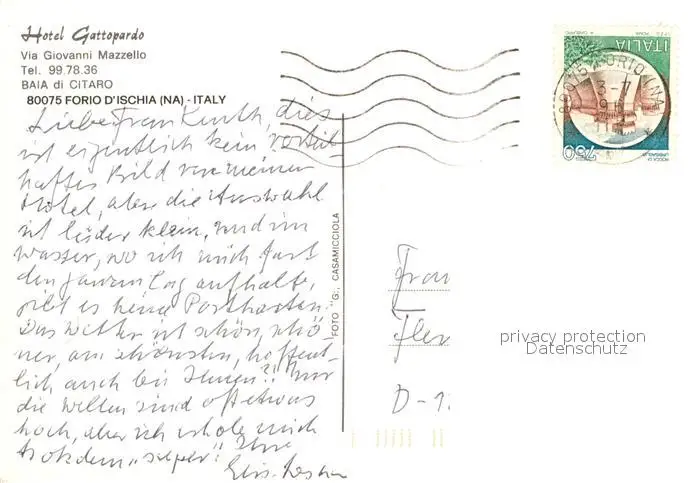 Hotel Gattopardo
Via Giovanni Mazzello
Tel. 99.78.36
BAIA di CITARO
80075 FORIO D'ISCHIA (NA) - ITALY
Liebe Frau Kenth, dies
ist eigentlich kein vorteil-
haftes Bild von meinem
Hotel, aber die Auswahl
ist leider klein, und im
Wasser, wo ich mich fast
den ganzen Tag aufhalte,
gibt es keine Postkarten.
Das Wetter ist schön, schö-
ner, am schönsten, hoffent-
lich auch bei Ihnen?! Nur
die Wellen sind oft etwas
hoch, aber ich erhole mich
trotzdem „super"! Ihre
FOTO "G", CASAMICCIOLA
ITALIA
750
80075 FORIO (NA)
Frau
D-1
privacy protection
Datenschutz